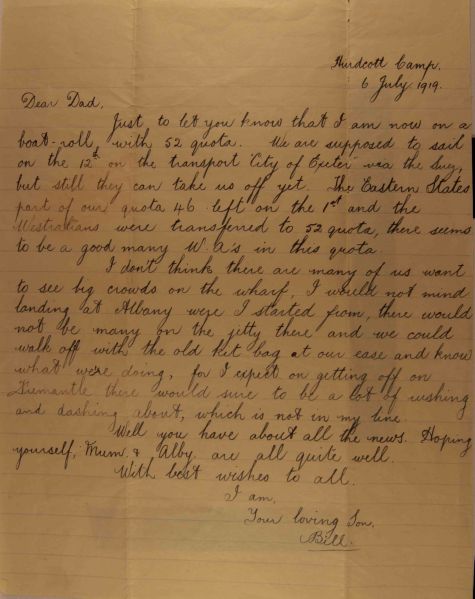 Hurdcott Camp.
6 July 1919.
Dear Dad,
Just to let you know that I am now on a
boat-roll, with 52 quota. We are supposed to sail
on the 12th on the transport "City of Exeter" via the Suez,
but still they can take us off yet. The Eastern States
part of our quota 46 left on the 1st and the
Westralians were transferred to 52 quota, there seems
to be a good many W.A's in this quota.
I don't think there are many of us want
to see big crowds on the wharf, I would not mind
landing at Albany were I started from, there would
not be many on the jetty there and we could
walk off with the old kit bag at our ease and know
what we're doing, for I expect on getting off on
Fremantle there would sure to be a lot of rushing
and dashing about, which is not in my line.
Well you have about all the news. Hoping
yourself, Mum. & Alby. are all quite well.
With best wishes to all.
I am.
Your loving Son.
Bill.